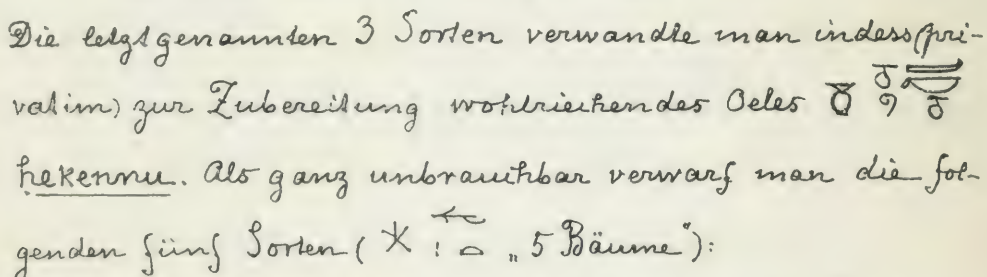 Die letztgenannten 3 Sorten verwandte man indess (pri-
vatim) zur Zubereitung wohlriechendes Oeles
ḥekennu. Als ganz unbrauchbar verwarf man die fol-
genden fünf Sorten ( „5 Bäume"):